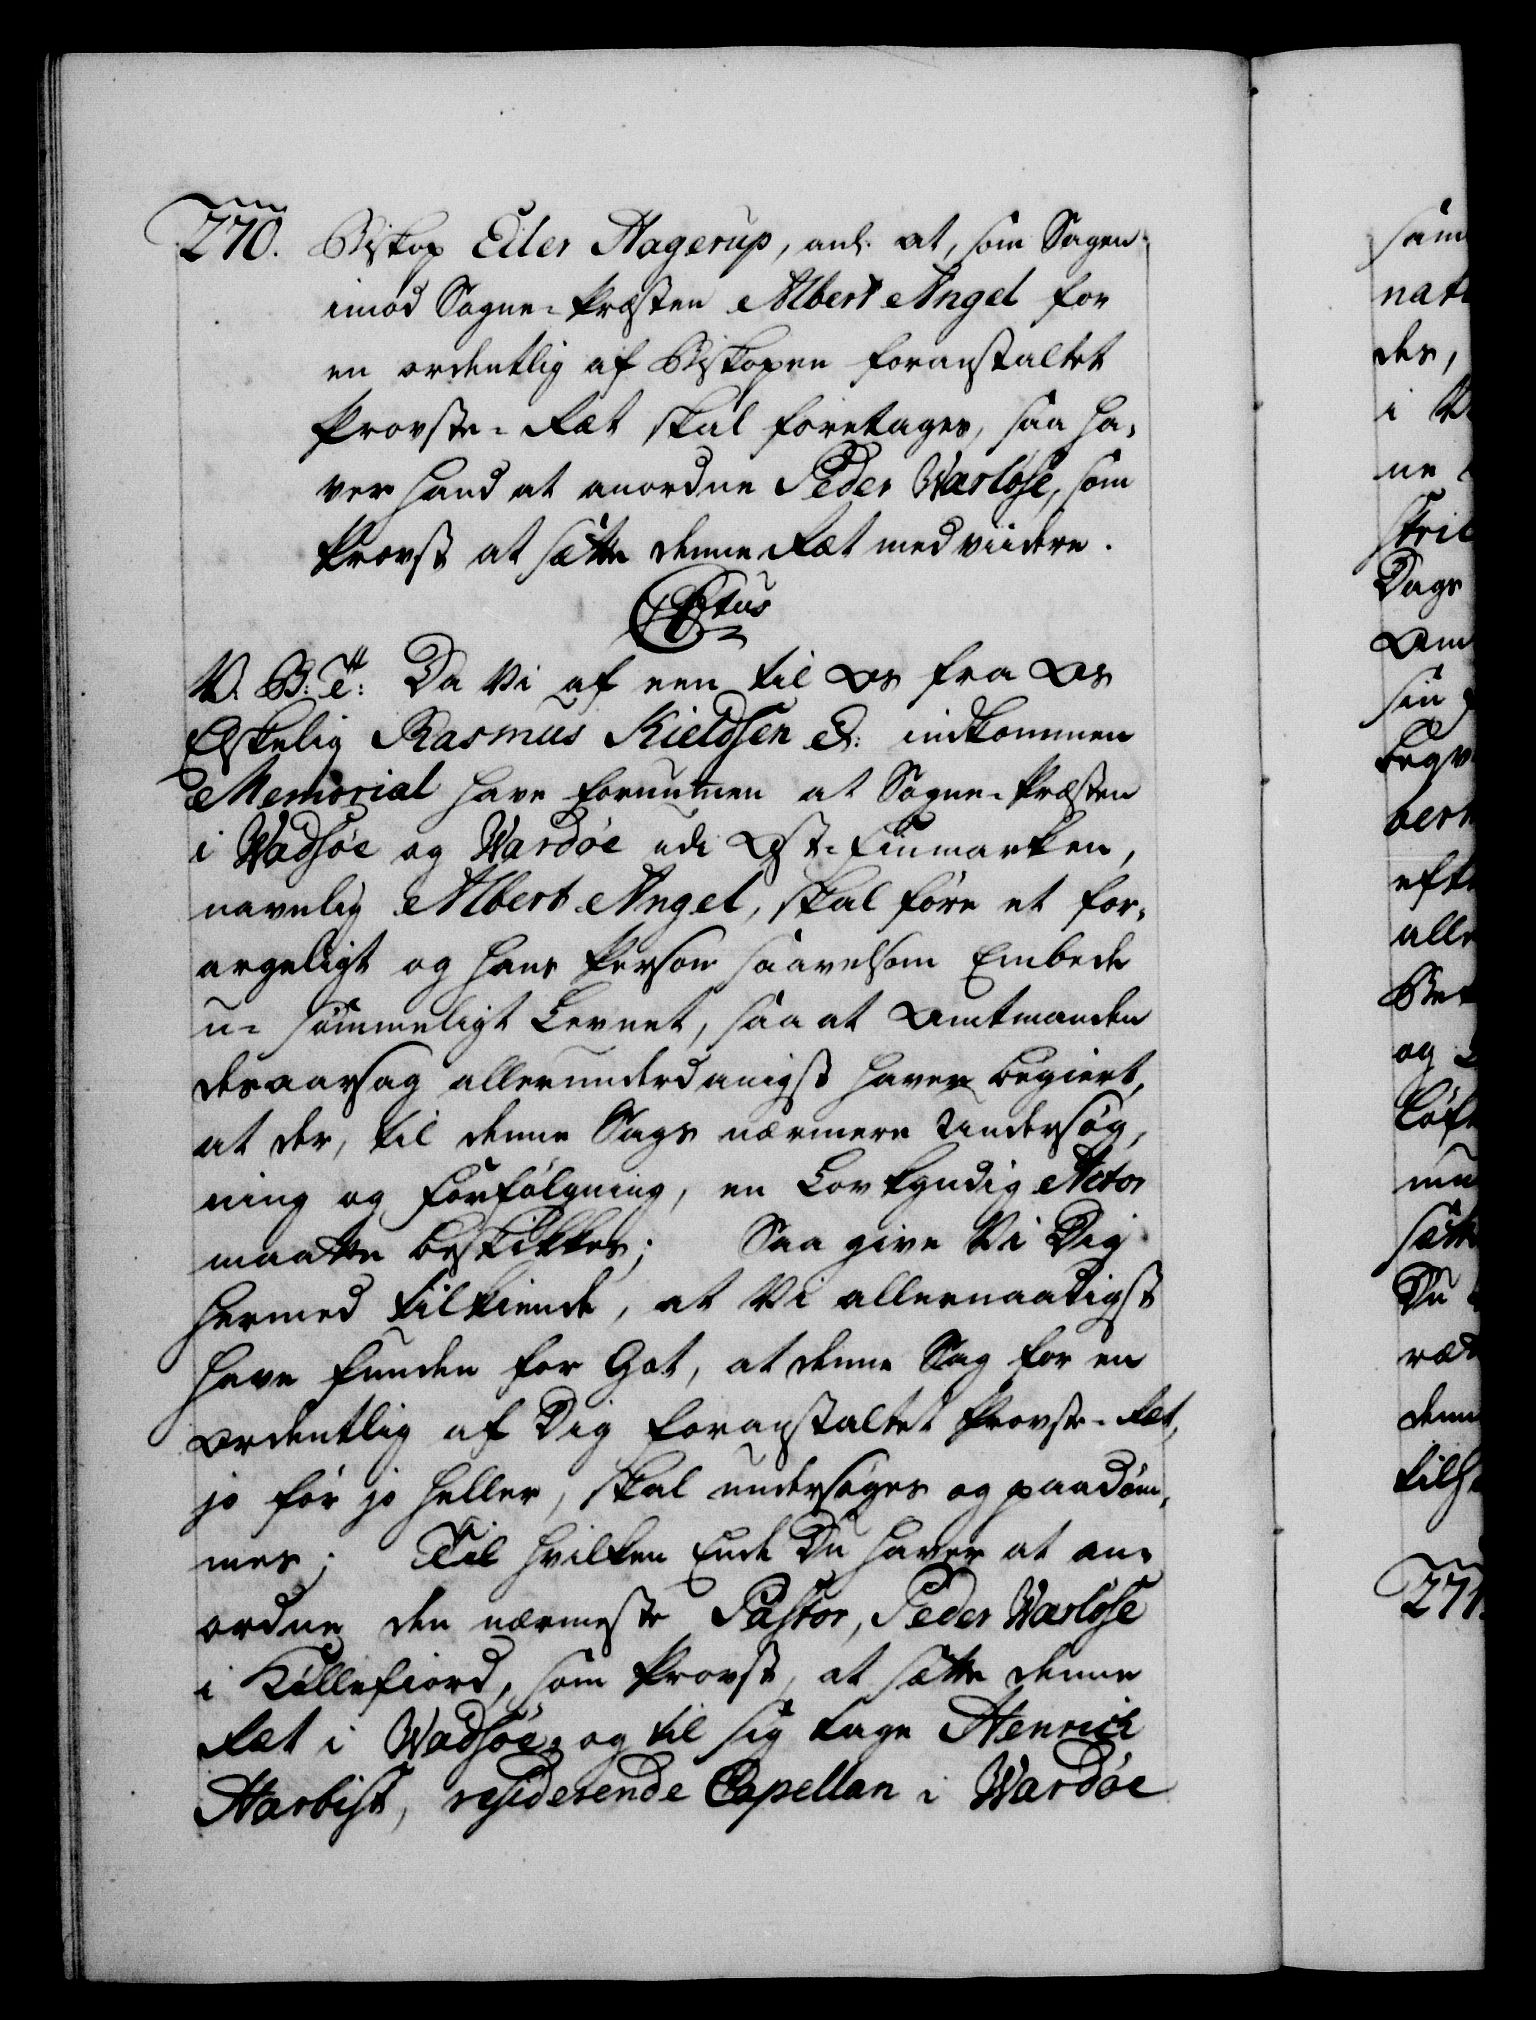 270. Biskop Eiler Hagerup, anl: at, som Sagen
imod Sogne-Præsten Albert Angel for
en ordentlig af Biskopen foranstaltet
Provste-Ræt skal foretages, saa ha-
ver hand at anordne Peder Warløse, som
Provst at sætte denne Ræt med viidere.
C6tus
V. G: T: Da Vi af een til Os fra Os
Elskelig Rasmus Kieldsen &: indkommen
Memorial have fornummen at Sogne-Præsten
i Wadsøe og Wardøe udi Ost-Finmarken,
navnlig Albert Angel, skal føre et for-
argeligt og hans Person saavelsom Embede
u-sømmeligt Levnet, saa at Amtmanden
desaarsag allerunderdanigst haver begiert,
at der, til denne Sags nærmere Undersøg-
ning og Forfølgning, en Lovkyndig Actor
maatte beskikkes; Saa give Vi Dig
hermed tilkiende, at Vi allernaadigst
have funden for Got, at denne Sag for en
ordentlig af Dig foranstaltet Provste-Ret,
jo før jo heller, skal undersøges og paadøm-
mes; Til hvilken Ende Du haver at an-
ordne den nærmeste Pastor, Peder Warløse
i Kiøllefiord, som Provst, at sætte denne
Ræt i Wadsøe, og til sig tage Henrich
Harbist, residerende Capellan i Wardøe
271.